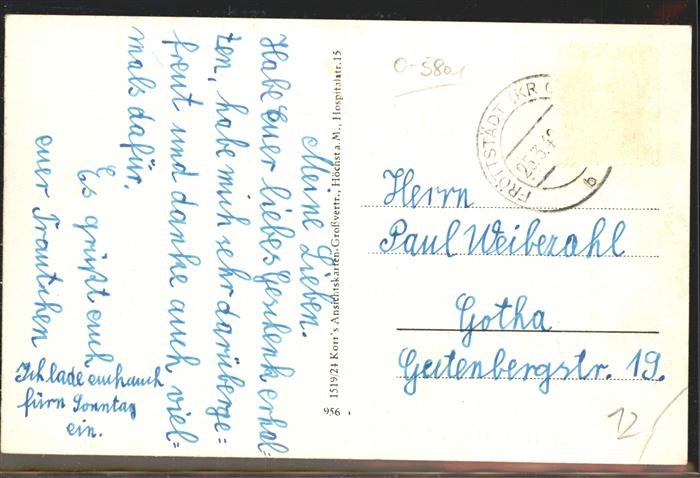 Meine Lieben.
Habe Euer liebes Geschenk erhal=
ten, habe mich sehr darüberge=
freut und danke auch viel=
mals dafür.
Es grüßt euch
euer Trautchen
Ich lade euch auch
fürn Sonntag
ein.
1519/24 Korr's Ansichtskarten-Großvertr., Höchst a. M., Hospitalstr. 15
956
O-5801
FRÖTTSTÄDT (KR G
25.3.4
b
Herrn
Paul Weiberzahl
Gotha
Gutenbergstr. 19.
12